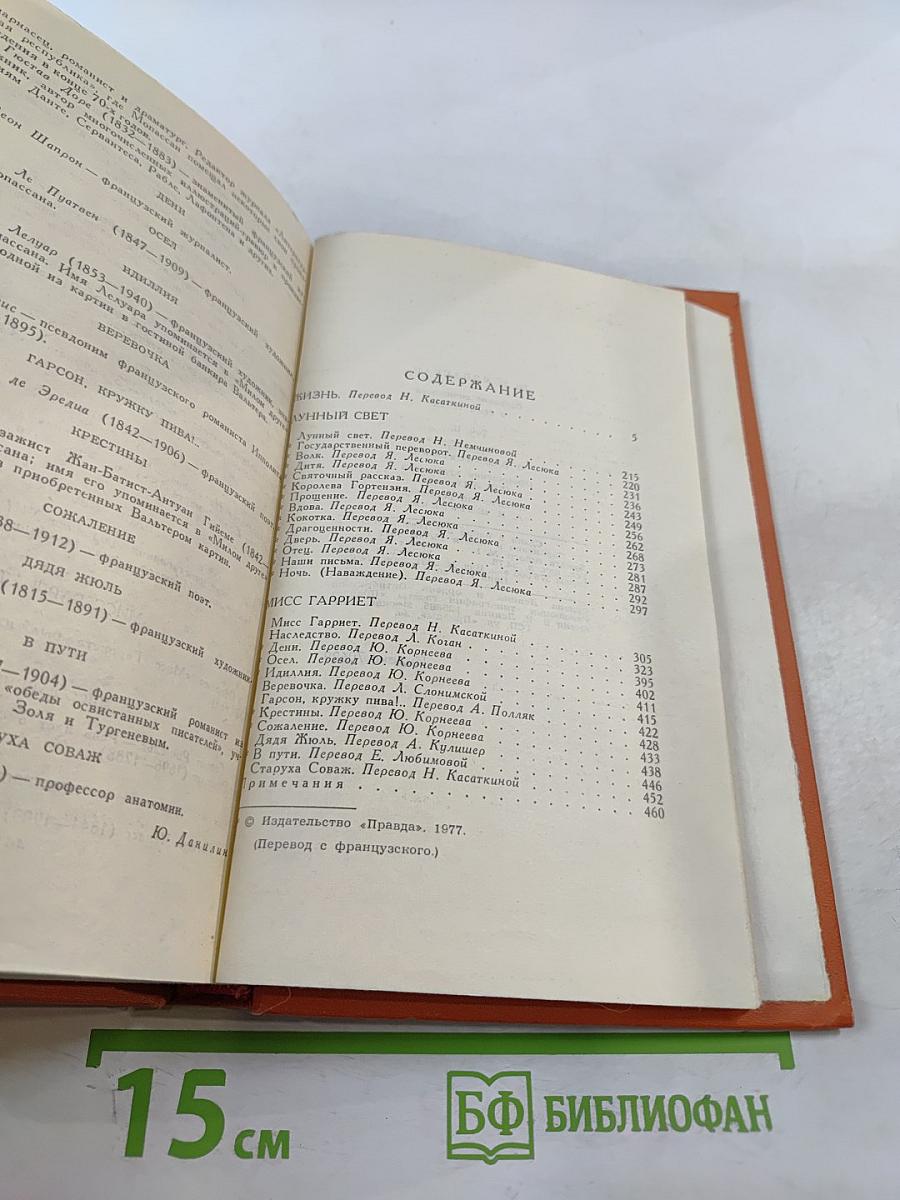 рнасец, романист и драматург. Редактор журнала
ая республика», где Мопассан помещал некоторые свои
дения в конце 70-х годов.
Гюстав Доре (1832—1883) — знаменитый французский
ник, автор многочисленных иллюстраций
иям Данте, Сервантеса, Рабле, Лафонтена и других
ДЕНИ
еон Шапрон — французский журналист.
ОСЕЛ
Ле Пуатвен (1847—1909) — французский
опассана.
ИДИЛЛИЯ
Лелуар (1853—1940) — французский художник,
пассана. Имя Лелуара упоминается в «Милом друге»
одной из картин в гостиной банкира Вальтера.
ВЕРЕВОЧКА
ис — псевдоним французского романиста
1895).
ГАРСОН, КРУЖКУ ПИВА!..
де Эредиа (1842—1906) — французский поэт.
КРЕСТИНЫ
зажист Жан-Батист-Антуан Гийеме (1842—
ссана; имя его упоминается в «Милом друге»
приобретенных Вальтером картин.
СОЖАЛЕНИЕ
38—1912) — французский поэт.
ДЯДЯ ЖЮЛЬ
(1815—1891) — французский художник
В ПУТИ
—1904) — французский романист из
«обеды освистанных писателей», уч-
Золя и Тургеневым.
УХА СОВАЖ
) — профессор анатомии.
Ю. Данилин
СОДЕРЖАНИЕ
ЖИЗНЬ. Перевод Н. Касаткиной . . . 5
ЛУННЫЙ СВЕТ
Лунный свет. Перевод Н. Немчиновой . . . 215
Государственный переворот. Перевод Я. Лесюка . . . 220
Волк. Перевод Я. Лесюка . . . 231
Дитя. Перевод Я. Лесюка . . . 236
Святочный рассказ. Перевод Я. Лесюка . . . 243
Королева Гортензия. Перевод Я. Лесюка . . . 249
Прощение. Перевод Я. Лесюка . . . 256
Вдова. Перевод Я. Лесюка . . . 262
Кокотка. Перевод Я. Лесюка . . . 268
Драгоценности. Перевод Я. Лесюка . . . 273
Дверь. Перевод Я. Лесюка . . . 281
Отец. Перевод Я. Лесюка . . . 287
Наши письма. Перевод Я. Лесюка . . . 292
Ночь. (Наваждение). Перевод Я. Лесюка . . . 297
МИСС ГАРРИЕТ
Мисс Гарриет. Перевод Н. Касаткиной . . . 305
Наследство. Перевод Л. Коган . . . 323
Дени. Перевод Ю. Корнеева . . . 395
Осел. Перевод Ю. Корнеева . . . 402
Идиллия. Перевод Ю. Корнеева . . . 411
Веревочка. Перевод Л. Слонимской . . . 415
Гарсон, кружку пива!.. Перевод А. Полляк . . . 422
Крестины. Перевод Ю. Корнеева . . . 428
Сожаление. Перевод Ю. Корнеева . . . 433
Дядя Жюль. Перевод А. Кулишер . . . 438
В пути. Перевод Е. Любимовой . . . 446
Старуха Соваж. Перевод Н. Касаткиной . . . 452
Примечания . . . 460
© Издательство «Правда». 1977.
(Перевод с французского.)
15 см
БФ БИБЛИОФАН